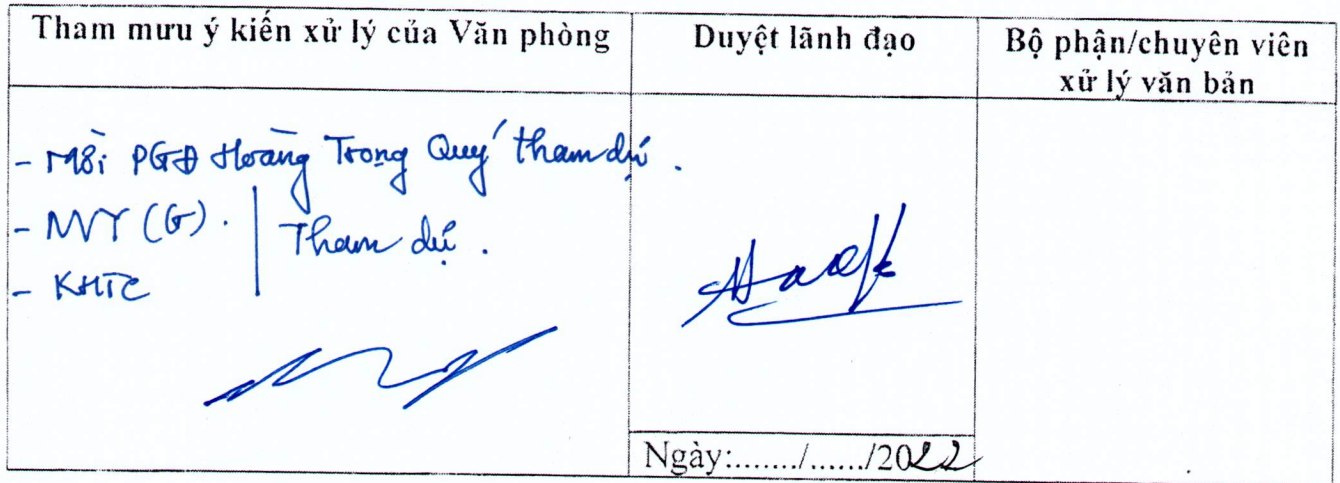 Tham mưu ý kiến xử lý của Văn phòng
Duyệt lãnh đạo
Bộ phận/chuyên viên
xử lý văn bản
- Mời PGĐ Hoàng Trọng Quý tham dự.
- NVY (G).
Tham dự.
- KHTC
Ngày:......./....../2022